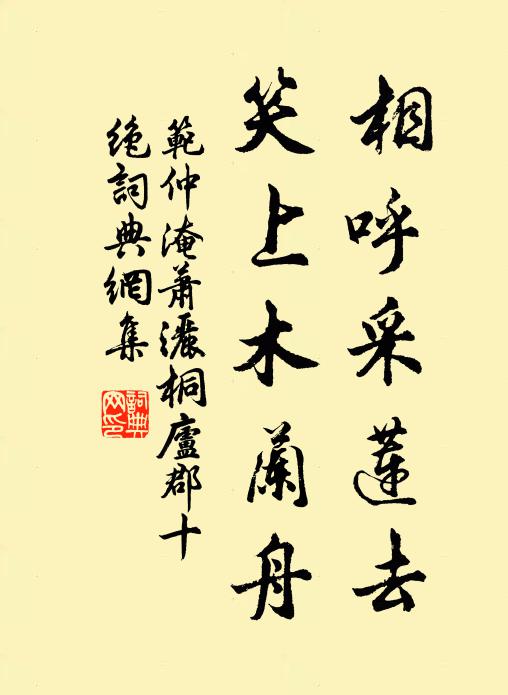 相呼采蓮去
笑上木蘭舟
範仲淹蕭灑桐廬郡十
絶詞典網集
詞典网印